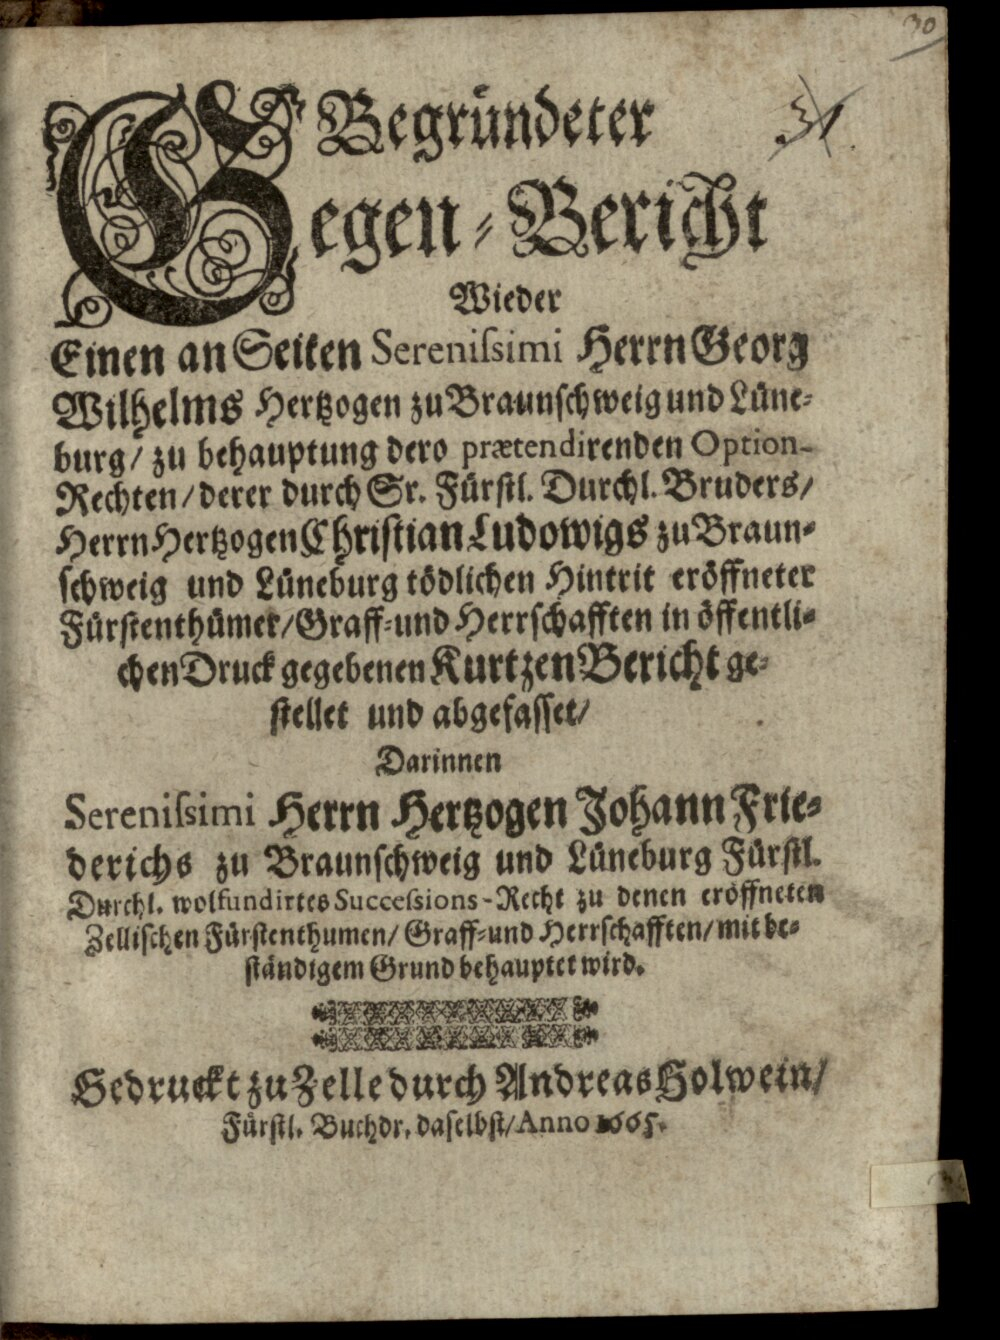 30
31.
Begründeter
Gegen-Bericht
Wieder
Einen an Seiten Sereniſsimi Herrn Georg
Wilhelms Hertzogen zu Braunſchweig und Lüne-
burg/ zu behauptung dero prætendirenden Option-
Rechten/ derer durch Sr. Fürſtl. Durchl. Bruders/
Herrn Hertzogen Chriſtian Ludowigs zu Braun-
ſchweig und Lüneburg tödlichen Hintrit eröffneter
Fürſtenthümer/ Graff-und Herrſchafften in öffentli-
chen Druck gegebenen Kurtzen Bericht ge-
ſtellet und abgefaſſet/
Darinnen
Sereniſsimi Herrn Hertzogen Johann Frie-
derichs zu Braunſchweig und Lüneburg Fürſtl.
Durchl. wolfundirtes Succeſsions-Recht zu denen eröffneten
Zelliſchen Fürſtenthumen/ Graff-und Herrſchafften/ mit be-
ſtändigem Grund behauptet wird.
Gedruckt zu Zelle durch Andreas Holwein/
Fürſtl. Buchdr. daſelbſt/ Anno 1665.